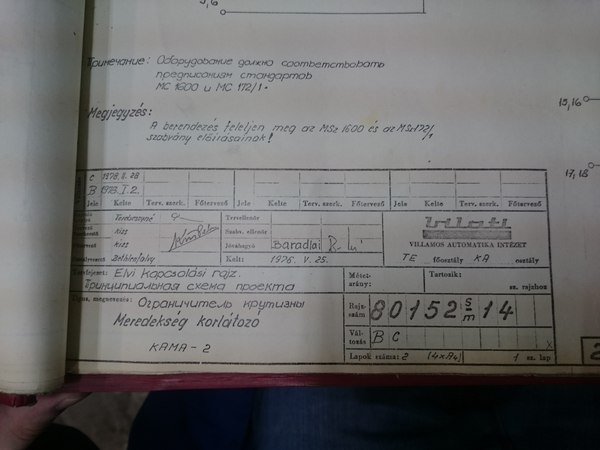 5,6
Примечание: Оборудование должно соответствовать
предписаниям стандартов
МС 1600 и МС 172/1.
15,16
Megjegyzés:
A berendezés feleljen meg az MSz 1600 és az MSz 172/1
szabvány előírásainak!
17,18
C 1978.II.28
B 1978.I.2.
Jele Kelte Terv. szerk. Főtervező Jele Kelte Terv. szerk. Főtervező Jele Kelte Terv. szerk. Főtervező
Tervellenőr
Kiss Szabv. ellenőr
kiss Jóváhagyó Baradlai
Kelt: 1976. V. 25.
Vilati
VILLAMOS AUTOMATIKA INTÉZET
TE főosztály KA osztály
Elvi kapcsolási rajz.
Принципиальная схема проекта
Méret-
arány:
Tartozik:
sz. rajzhoz
megnevezése: Ограничитель крутизны
Meredekség korlátozó
КАМА-2
Rajz-
szám 80152 S/m 14
Vál-
tozás B C
Lapok száma: 2 (4xA4) 1 sz. lap
2